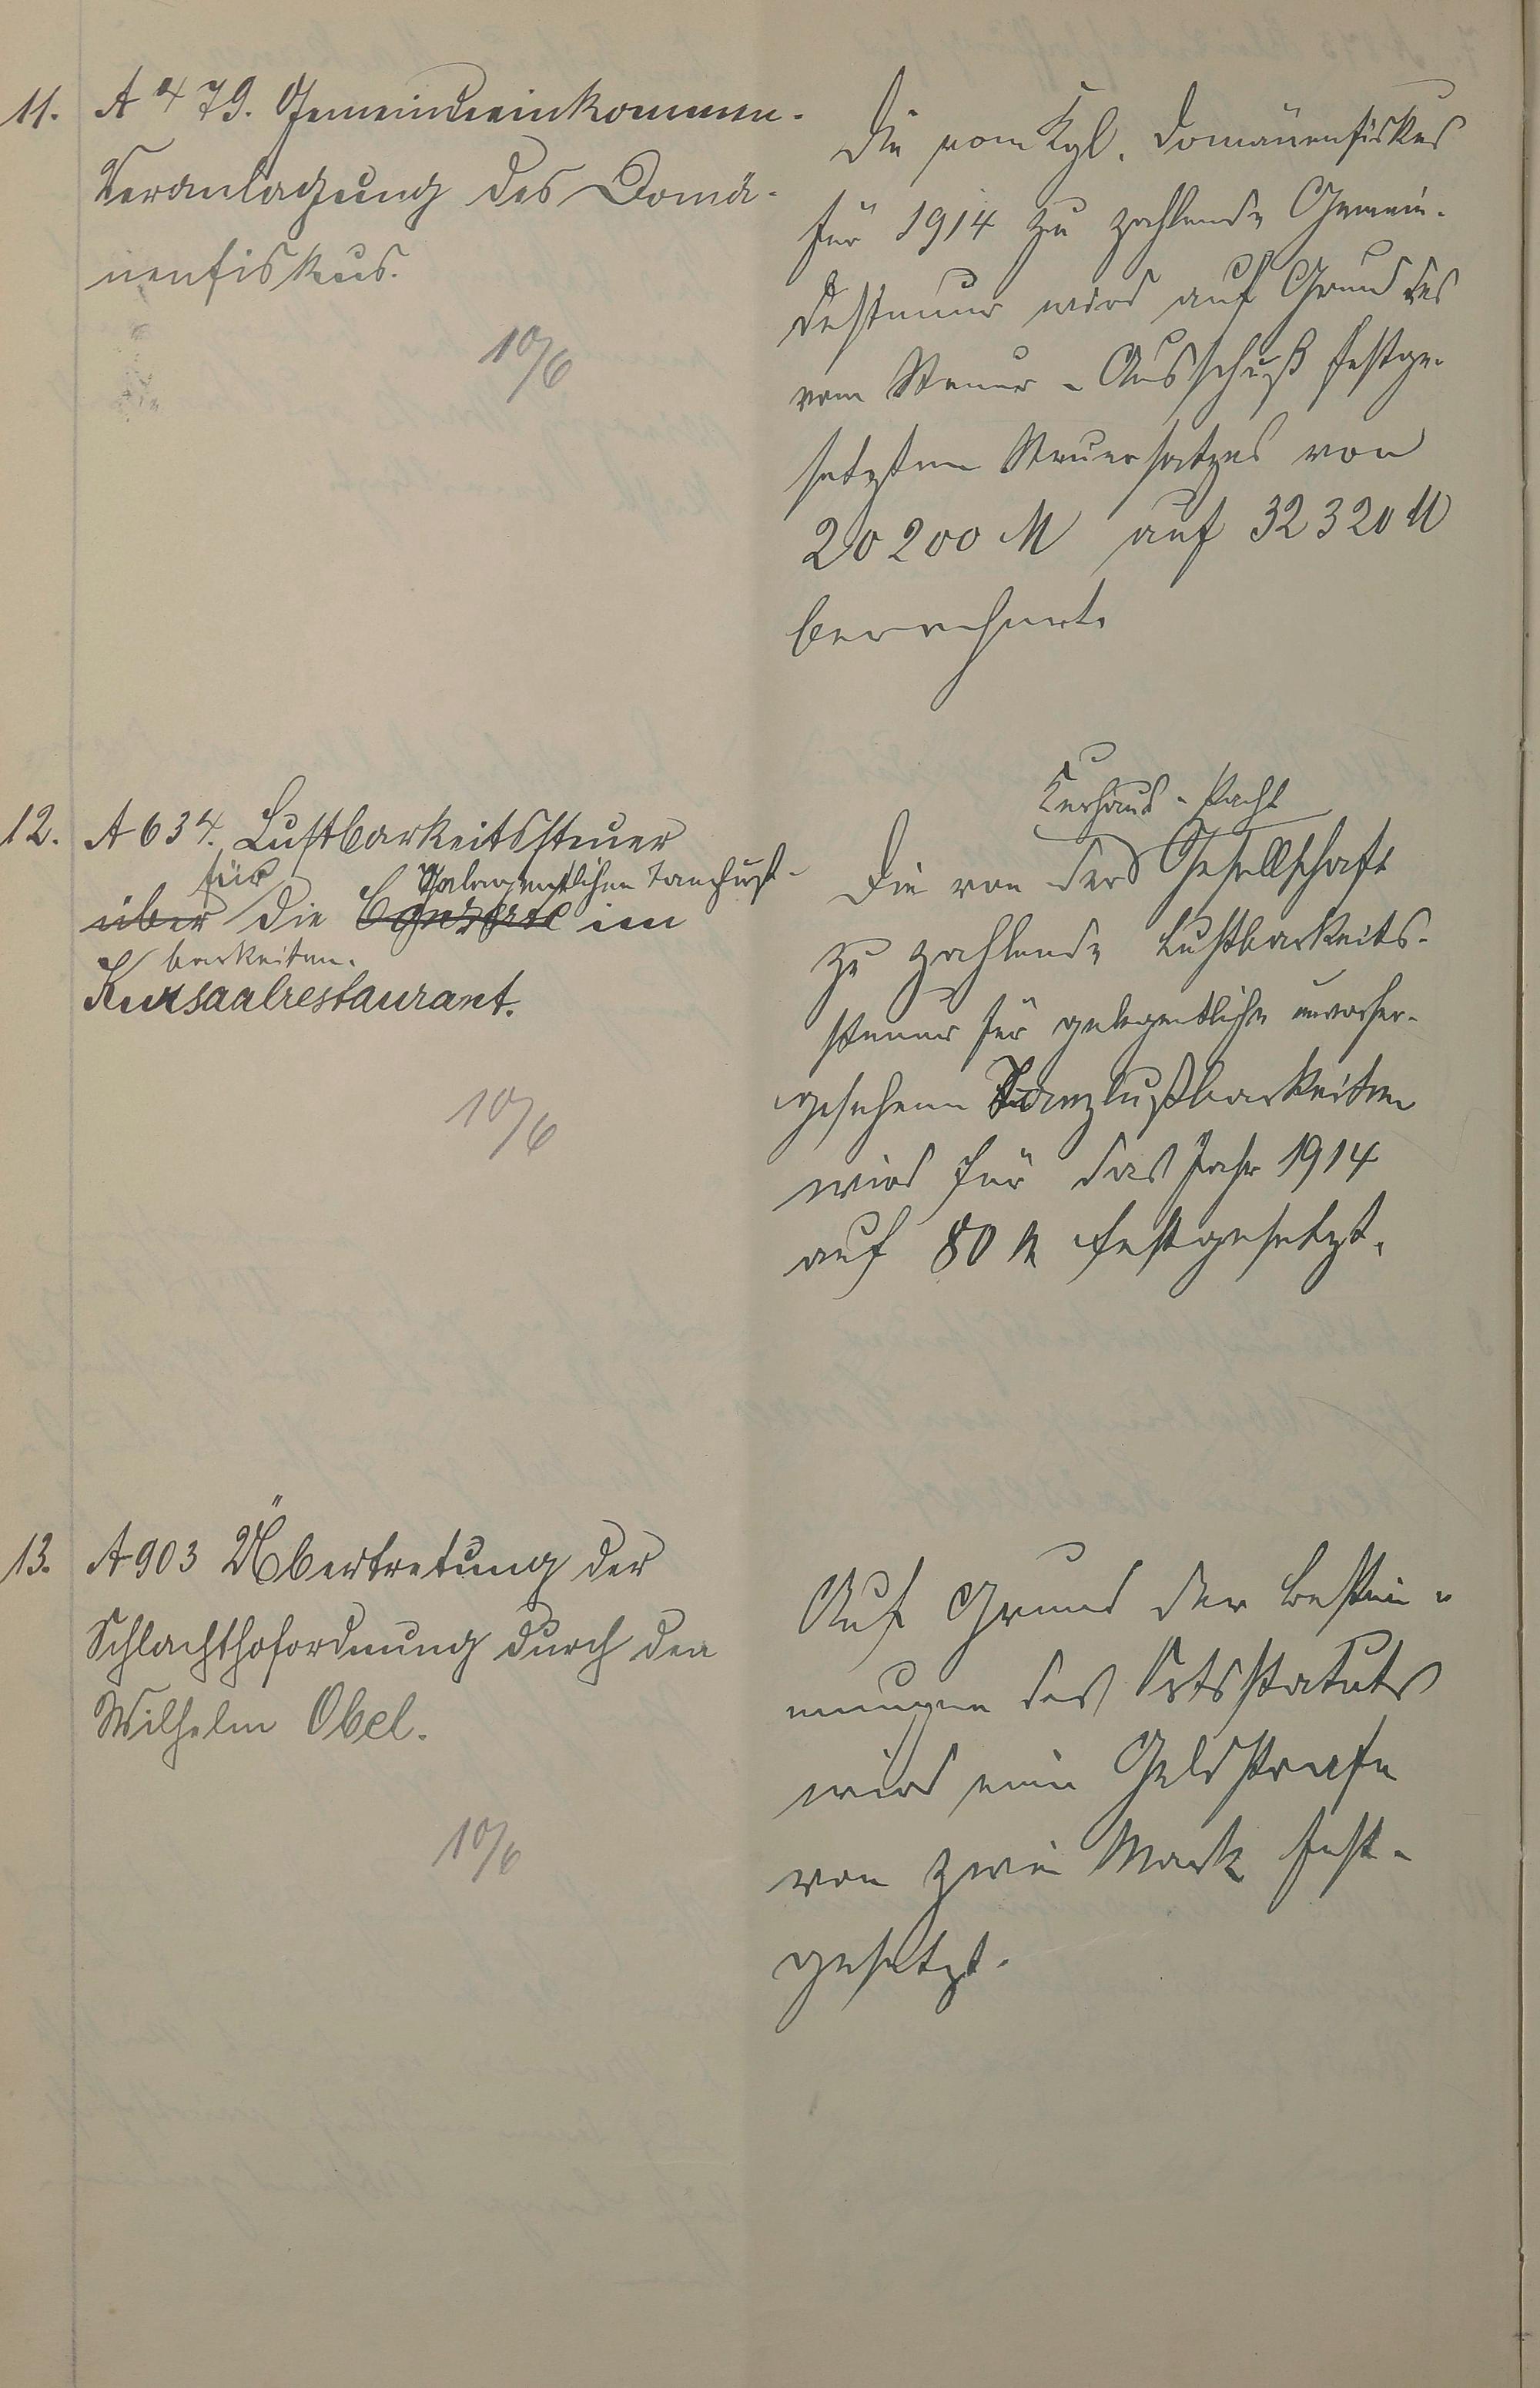 11. A 479. Gemeindeeinkommen-
Veranlagung des Domä-
nenfiskus.
10/6
Die vom Kgl. Domänenfiskus
für 1914 zu zahlende Gemein-
desteuer wird auf Grund des
vom Steuer-Ausschuß festge-
setzten Steuersatzes von
20200 M auf 32320 M
berechnet.
12. A 634. Lustbarkeitssteuer
für gelegentlichen Tanzlust-
über die Conzerte im
barkeiten.
Kursaalrestaurant.
10/6
Kurhaus-Pacht
Die von der Gesellschaft
zu zahlende Lustbarkeits-
steuer für gelegentliche unvorher-
gesehene Tanzlustbarkeiten
wird für das Jahr 1914
auf 80 M festgesetzt.
13. A 903 Übertretung der
Schlachthofordnung durch den
Wilhelm Obel.
10/6
Auf Grund der Bestim-
mungen des Ortsstatuts
wird eine Geldstrafe
von zwei Mark fest-
gesetzt.